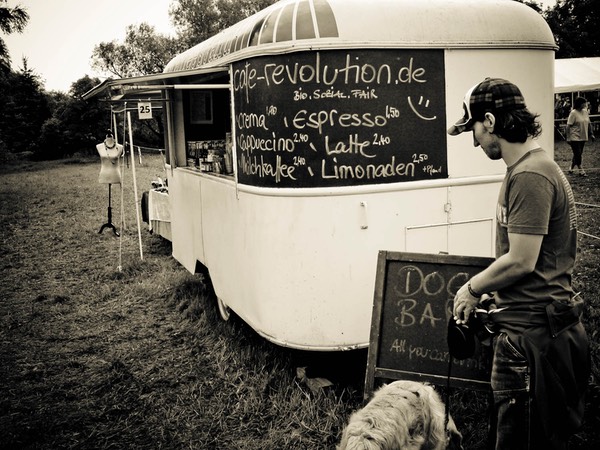 cafe-revolution.de
BIO. SOZIAL. FAIR
Crema 1,90 Espresso 1,50
Cappuccino 2,40 Latte 2,40
Milchkaffee 2,40 Limonaden 2,50 + Pfand
25
DOG
BA
All you can